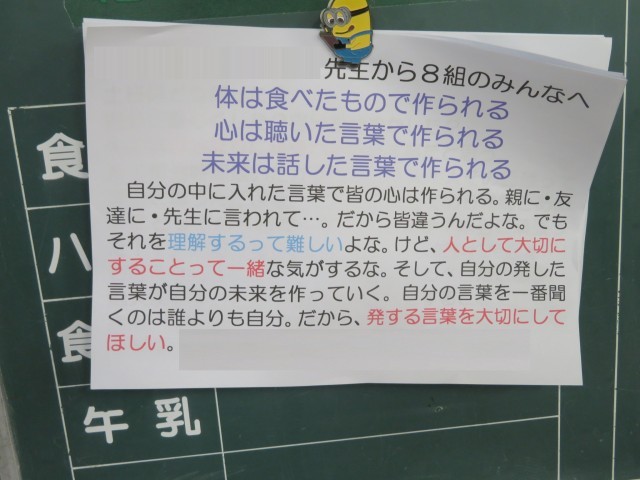 先生から8組のみんなへ
体は食べたもので作られる
心は聴いた言葉で作られる
未来は話した言葉で作られる
自分の中に入れた言葉で皆の心は作られる。親に・友
達に・先生に言われて…。だから皆違うんだよな。でも
それを理解するって難しいよな。けど、人として大切に
することって一緒な気がするな。そして、自分の発した
言葉が自分の未来を作っていく。自分の言葉を一番聞
くのは誰よりも自分。だから、発する言葉を大切にして
ほしい。
食
八
食
牛乳